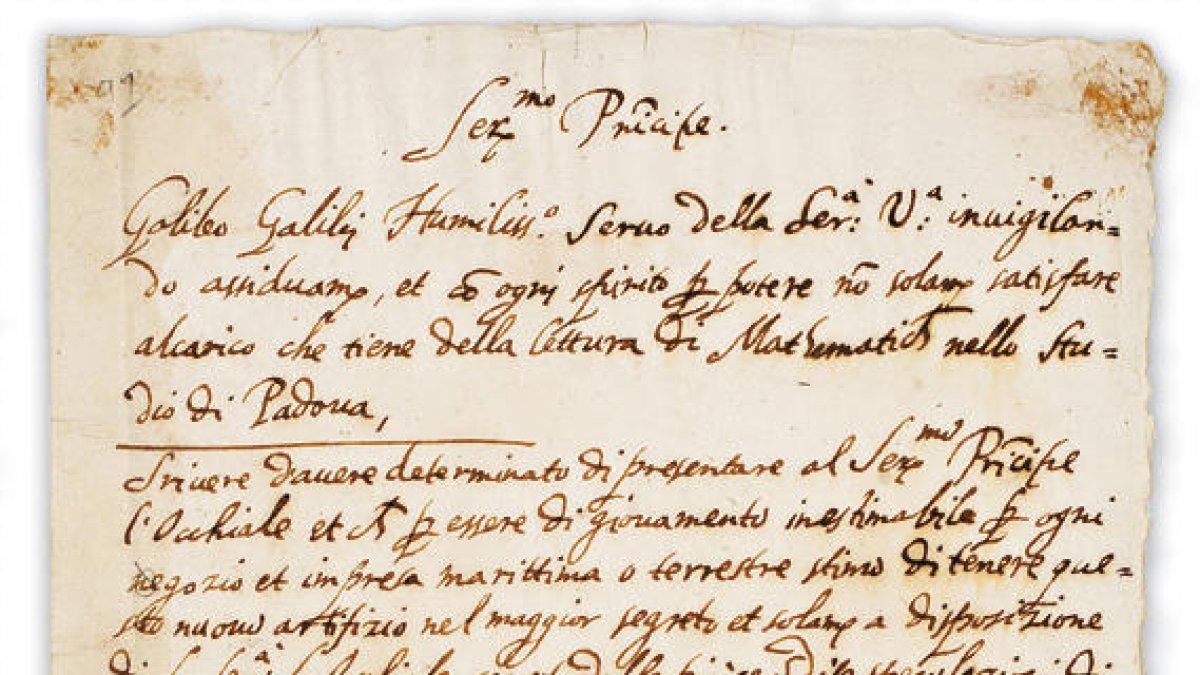 Ser.mo Pri̅cipe.
Galileo Galilej Humiliss.o Servo della Ser.a V.a inuigilan=
do assiduam, et cō ogni spirito p potere nō solam satisfare
alcarico che tiene della lettura di Mathematich nello Stu=
dio di Padoua,
Scrivere d'auere determinato di presentare al Ser.mo Pri̅cipe
l'Occhiale et p essere di giouamento inestimabile p ogni
negozio et impresa marittima o terrestre stimo di tenere que=
sto nuouo artifizio nel maggior segreto et solam a disposizione
di